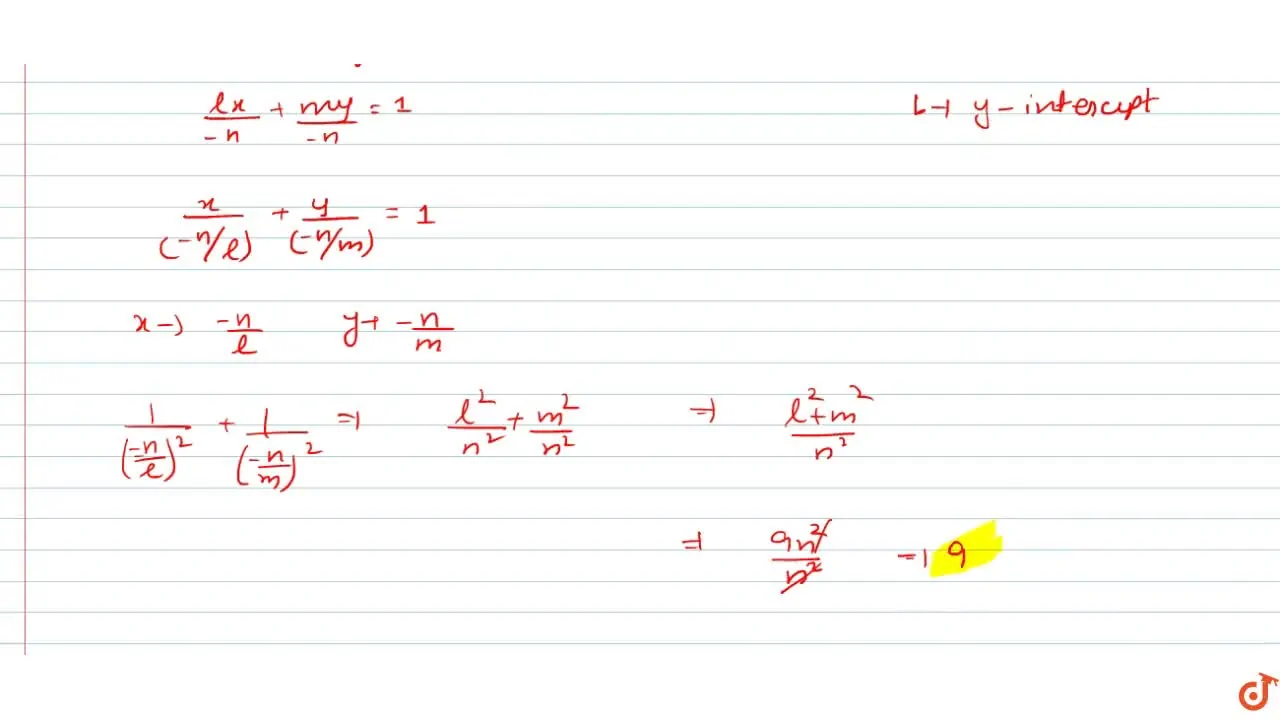 lx/-n + my/-n = 1
L→ y - intercept
x/(-n/l) + y/(-n/m) = 1
x → -n/l y → -n/m
1/(-n/l)² + 1/(-n/m)² ⇒ l²/n² + m²/n² ⇒ l²+m²/n²
⇒ 9n²/n² ⇒ 9